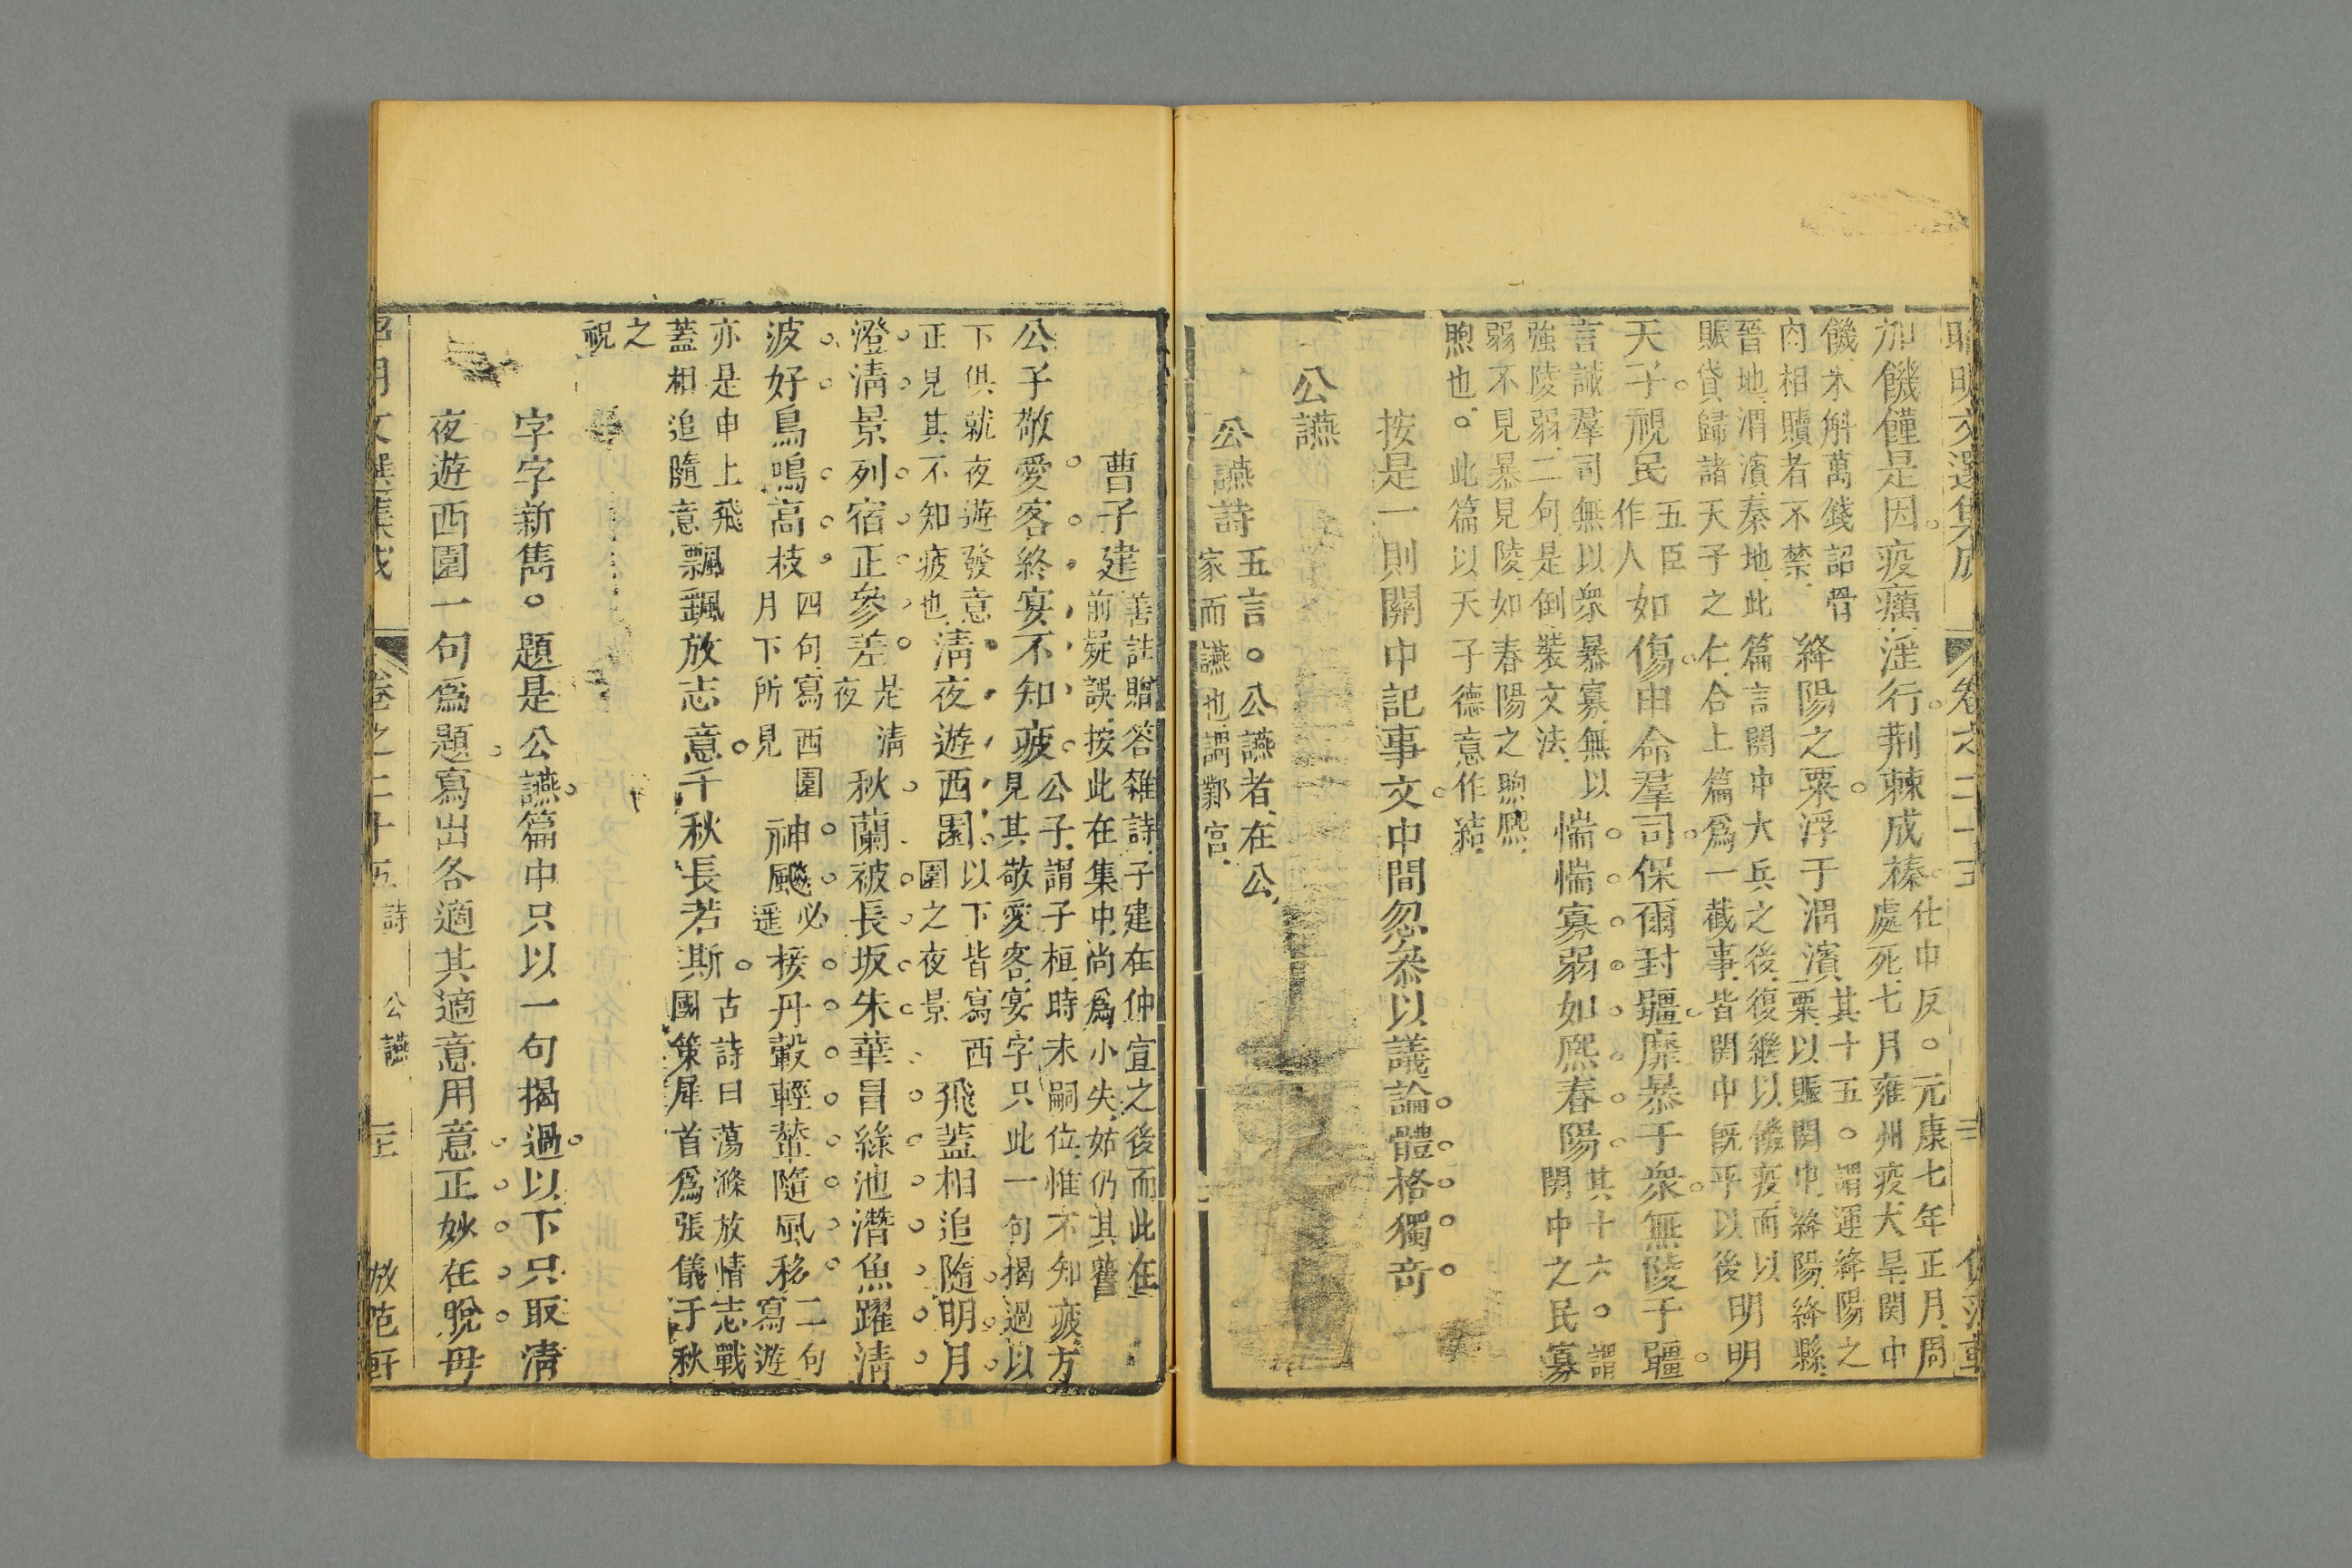 昭明文選集成 卷之二十五
加饑饉是因疫癘淫行荆棘成榛仕中反。元康七年正月周
處死七月雍州疫大旱関中
饑米斛萬錢詔骨
肉相贖者不禁
絳陽之粟浮于渭濱其十五。謂運絳陽之
粟以賑関中絳陽絳縣
晉地渭濱秦地此篇言関中大兵之後復繼以饑疫而以
賑貸歸諸天子之仁合上篇爲一截事皆関中旣平以後
明明
天子視民五臣
作人如傷申命羣司保爾封疆靡暴于衆無陵于疆
言誡羣司無以衆暴寡無以
強陵弱二句是倒裝文法
惴惴寡弱如熈春陽其十六。謂
関中之民寡
弱不見暴見陵如春陽之煦熈
煦也。此篇以天子德意作結
按是一則關中記事文中間忽叅以議論體格獨奇
公讌
公讌詩五言。公讌者在公
家而讌也謂鄴宫
曹子建善註贈答雜詩子建在仲宣之後而此在
前疑誤按此在集中尚爲小失姑仍其舊
公子敬愛客終宴不知疲公子謂子桓時未嗣位惟不知疲方
見其敬愛客宴字只此一句揭過以
下俱就夜遊發意
正見其不知疲也
清夜遊西園以下皆寫西
園之夜景
飛蓋相追隨明月
澄清景列宿正參差是清
夜
秋蘭被長坂朱華冒綠池潛魚躍清
波好鳥鳴高枝四句寫西園
月下所見
神飈必遥
接丹轂輕輦隨風移二句
寫遊
亦是申上飛
蓋相追隨意
飄飄放志意千秋長若斯古詩曰蕩滌放情志戰
國策犀首爲張儀千秋
之
祝
字字新雋。題是公讌篇中只以一句揭過以下只取清
夜遊西園一句爲題寫出各適其適意用意正妙在脫毋
昭明文選集成 卷之二十五 詩 公讌 放范軒